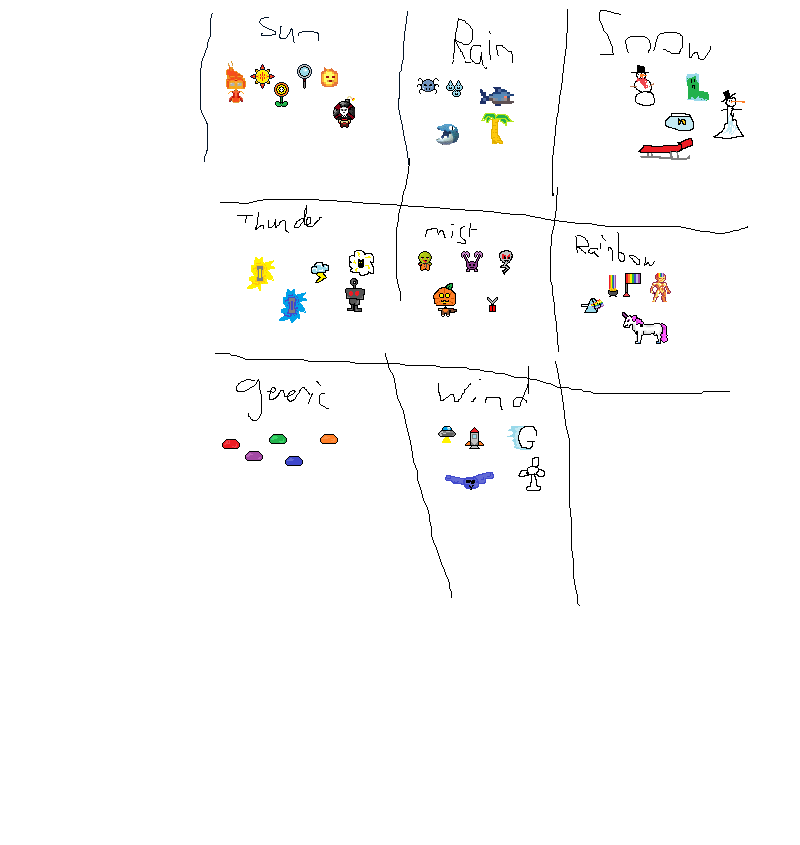 Sun
Rain
Snow
Thunder
mist
Rainbow
generic
Wind
G